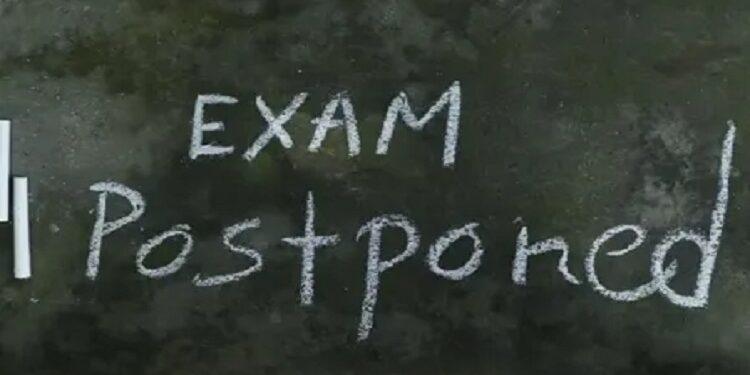 EXAM
Postponed